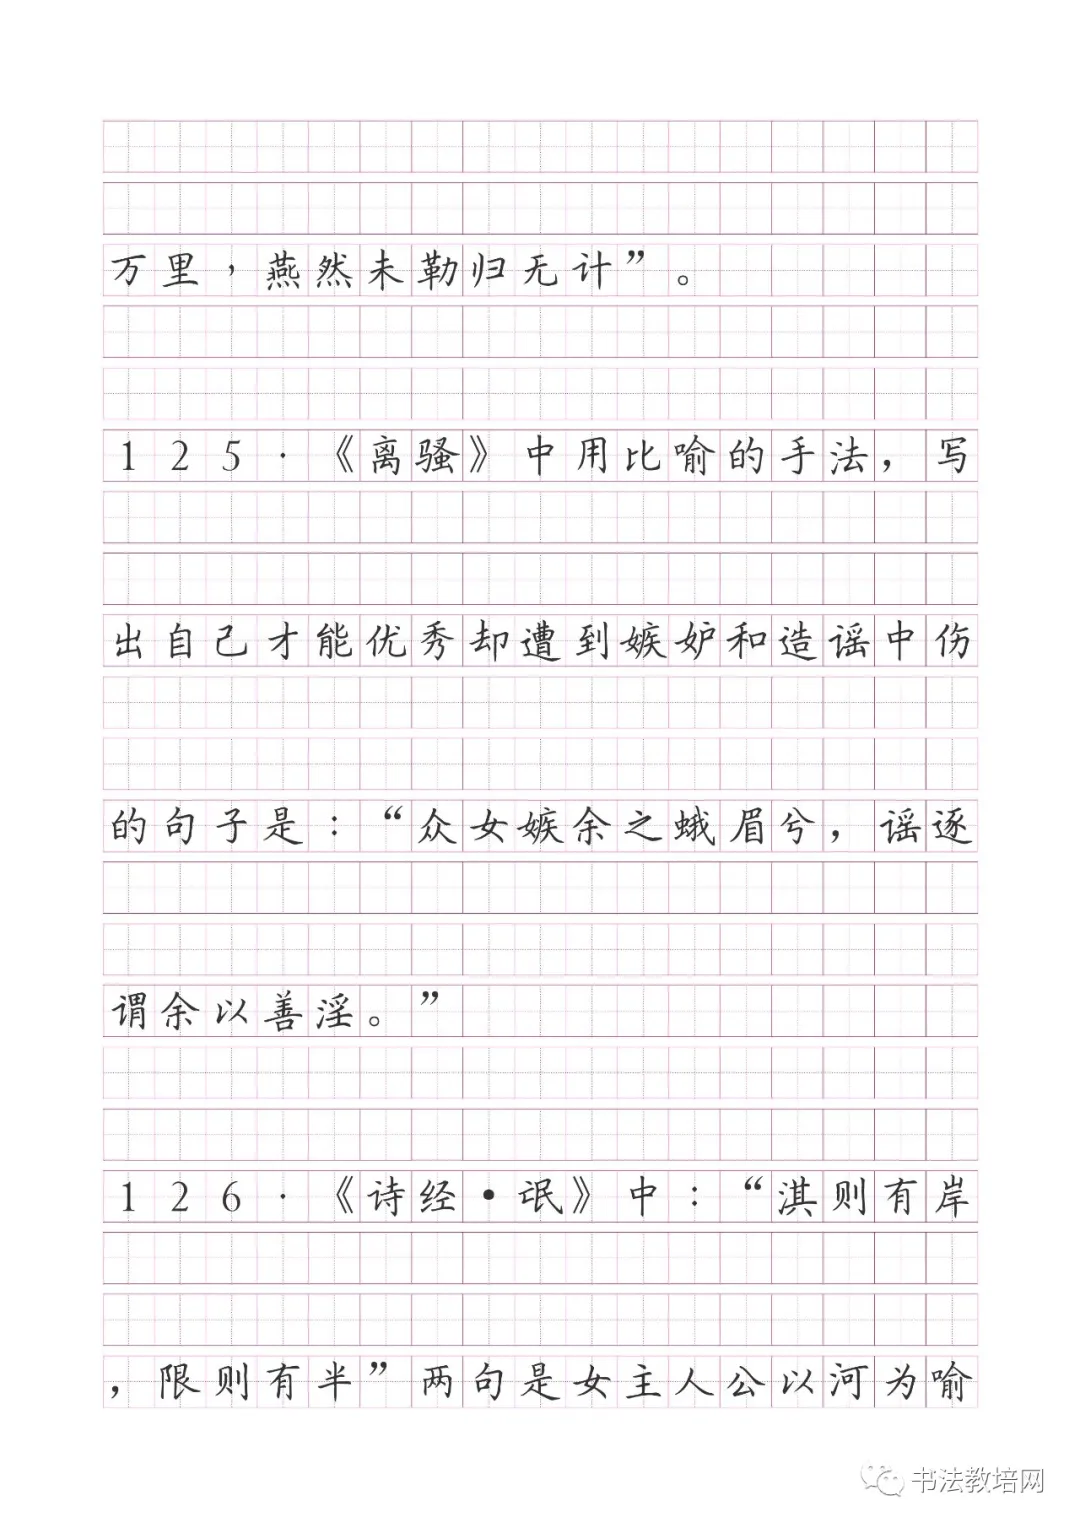 万里，燕然未勒归无计”。
125．《离骚》中用比喻的手法，写
出自己才能优秀却遭到嫉妒和造谣中伤
的句子是：“众女嫉余之蛾眉兮，谣逐
谓余以善淫。”
126．《诗经·氓》中：“淇则有岸
，限则有半”两句是女主人公以河为喻
书法教培网